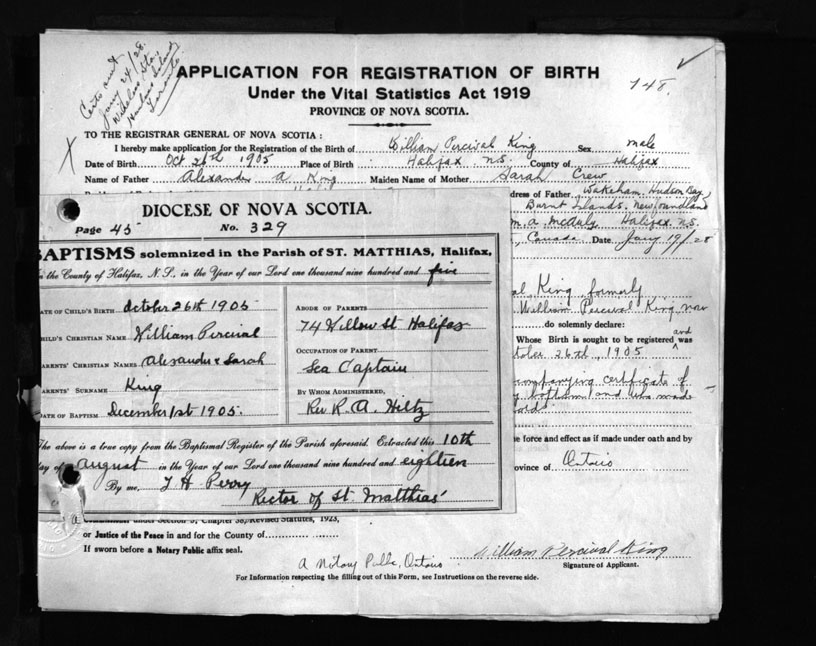 Certs sent
Jany 24/28.
148.
APPLICATION FOR REGISTRATION OF BIRTH
Under the Vital Statistics Act 1919
PROVINCE OF NOVA SCOTIA.
TO THE REGISTRAR GENERAL OF NOVA SCOTIA :
I hereby make application for the Registration of the Birth of William Percival King Sex male
X
Date of Birth Oct 26th 1905 Place of Birth Halifax N.S. County of Halifax
Name of Father Alexander A King Maiden Name of Mother Sarah Crew
dress of Father Wakeham, Hudson Bay,
Burnt Islands, Newfoundland
m. A. McAuly Halifax N.S.
, Canada Date Jany 19/28
al King formerly
William Percival King now
do solemnly declare:
Whose Birth is sought to be registered and was
tober 26th, 1905
companying certificate of
baptism and was made
e force and effect as if made under oath and by
ovince of Ontario
DIOCESE OF NOVA SCOTIA.
Page 45 No. 329
BAPTISMS solemnized in the Parish of ST. MATTHIAS, Halifax,
in the County of Halifax, N.S., in the Year of our Lord one thousand nine hundred and five
DATE OF CHILD'S BIRTH October 26th 1905
CHILD'S CHRISTIAN NAME William Percival
PARENTS' CHRISTIAN NAMES Alexander & Sarah
PARENTS' SURNAME King
DATE OF BAPTISM December 1st 1905.
ABODE OF PARENTS
74 Willow St Halifax
OCCUPATION OF PARENT
Sea Captain
BY WHOM ADMINISTERED,
Rev R. A. Hiltz
The above is a true copy from the Baptismal Register of the Parish aforesaid. Extracted this 10th
day of August in the Year of our Lord one thousand nine hundred and eighteen
By me, T H Perry
Rector of St. Matthias'
A Commissioner under Section 5, Chapter 38, Revised Statutes, 1923,
or Justice of the Peace in and for the County of
If sworn before a Notary Public affix seal.
A Notary Public, Ontario
William Percival King
Signature of Applicant.
For Information respecting the filling out of this Form, see Instructions on the reverse side.